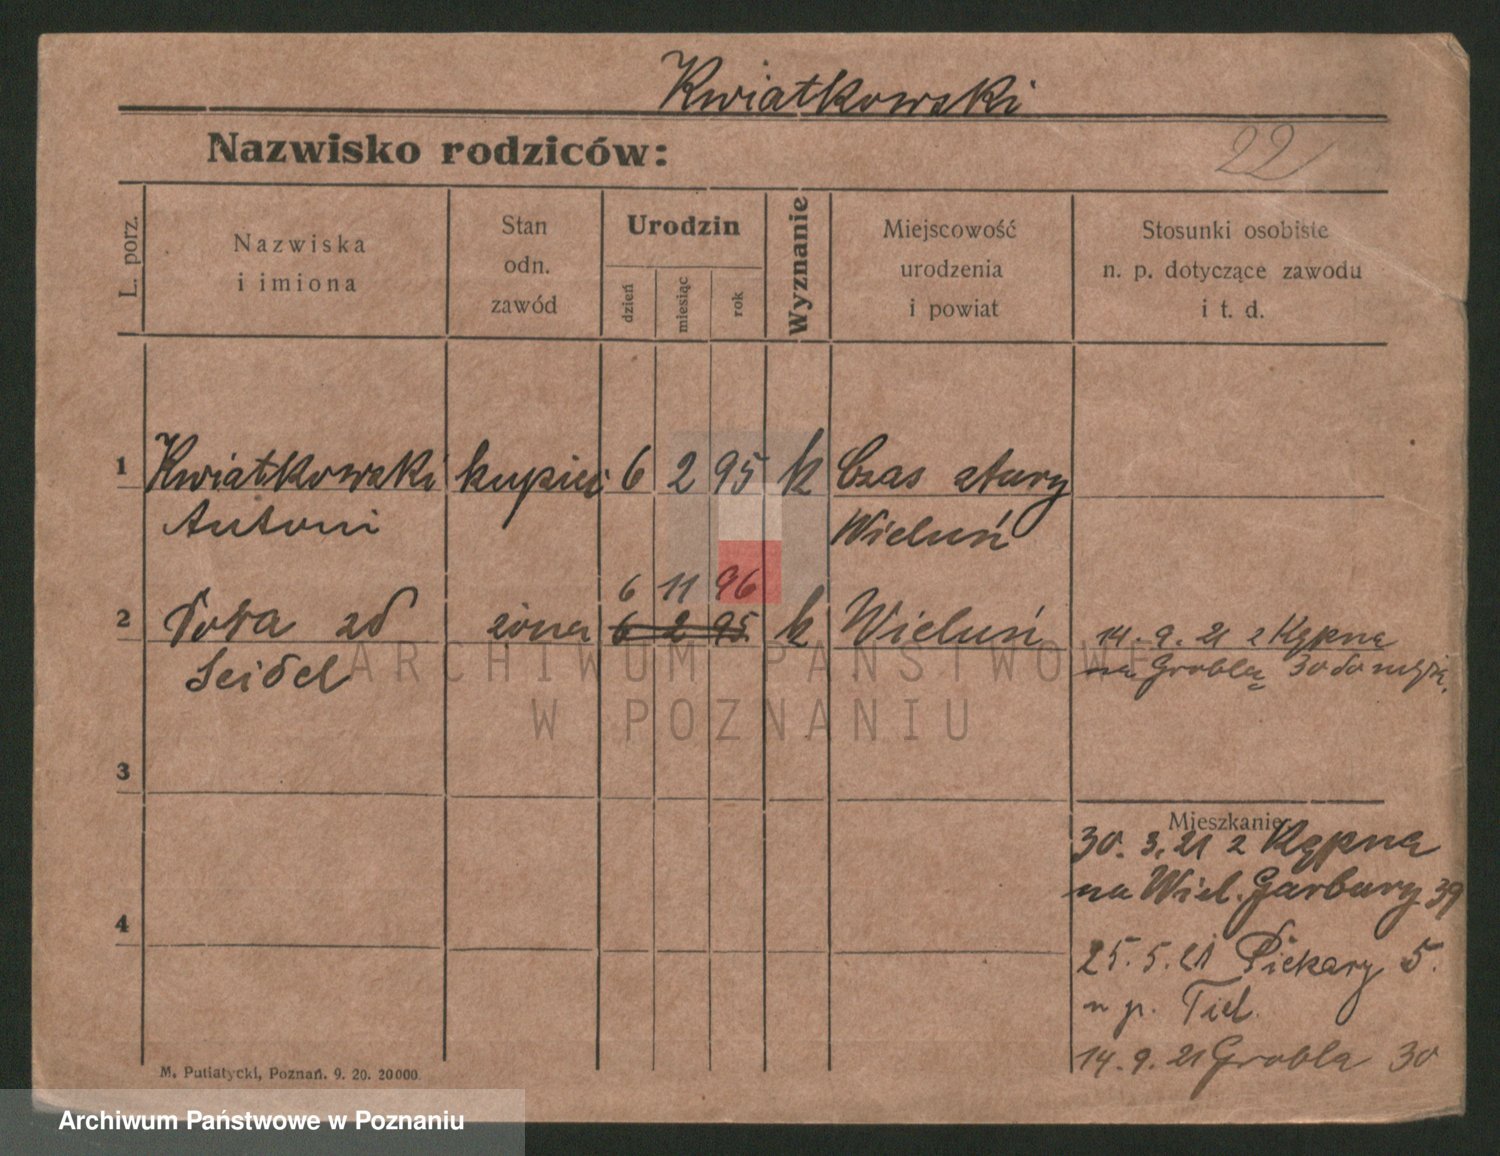 Kwiatkowski
Nazwisko rodziców:
22
L. porz.
Nazwiska
i imiona
Stan
odn.
zawód
Urodzin
dzień
miesiąc
rok
Wyznanie
Miejscowość
urodzenia
i powiat
Stosunki osobiste
n. p. dotyczące zawodu
i t. d.
1 Kwiatkowski kupiec 6 2 95 k Czas stary
Antoni Wieluń
6 11 96
2 Dora zd żona 6 2 95 k Wieluń 14. 9. 21 z Kępna
Seidel na Grobla 30 do męża.
ARCHIWUM PAŃSTWOWE
W POZNANIU
3
Mieszkanie
30. 3. 21 z Kępna
na Wiel. Garbary 39
4
25. 5. 21 Piekary 5.
u p. Tiel.
14. 9. 21 Grobla 30
M. Putiatycki, Poznań. 9. 20. 20000.
Archiwum Państwowe w Poznaniu